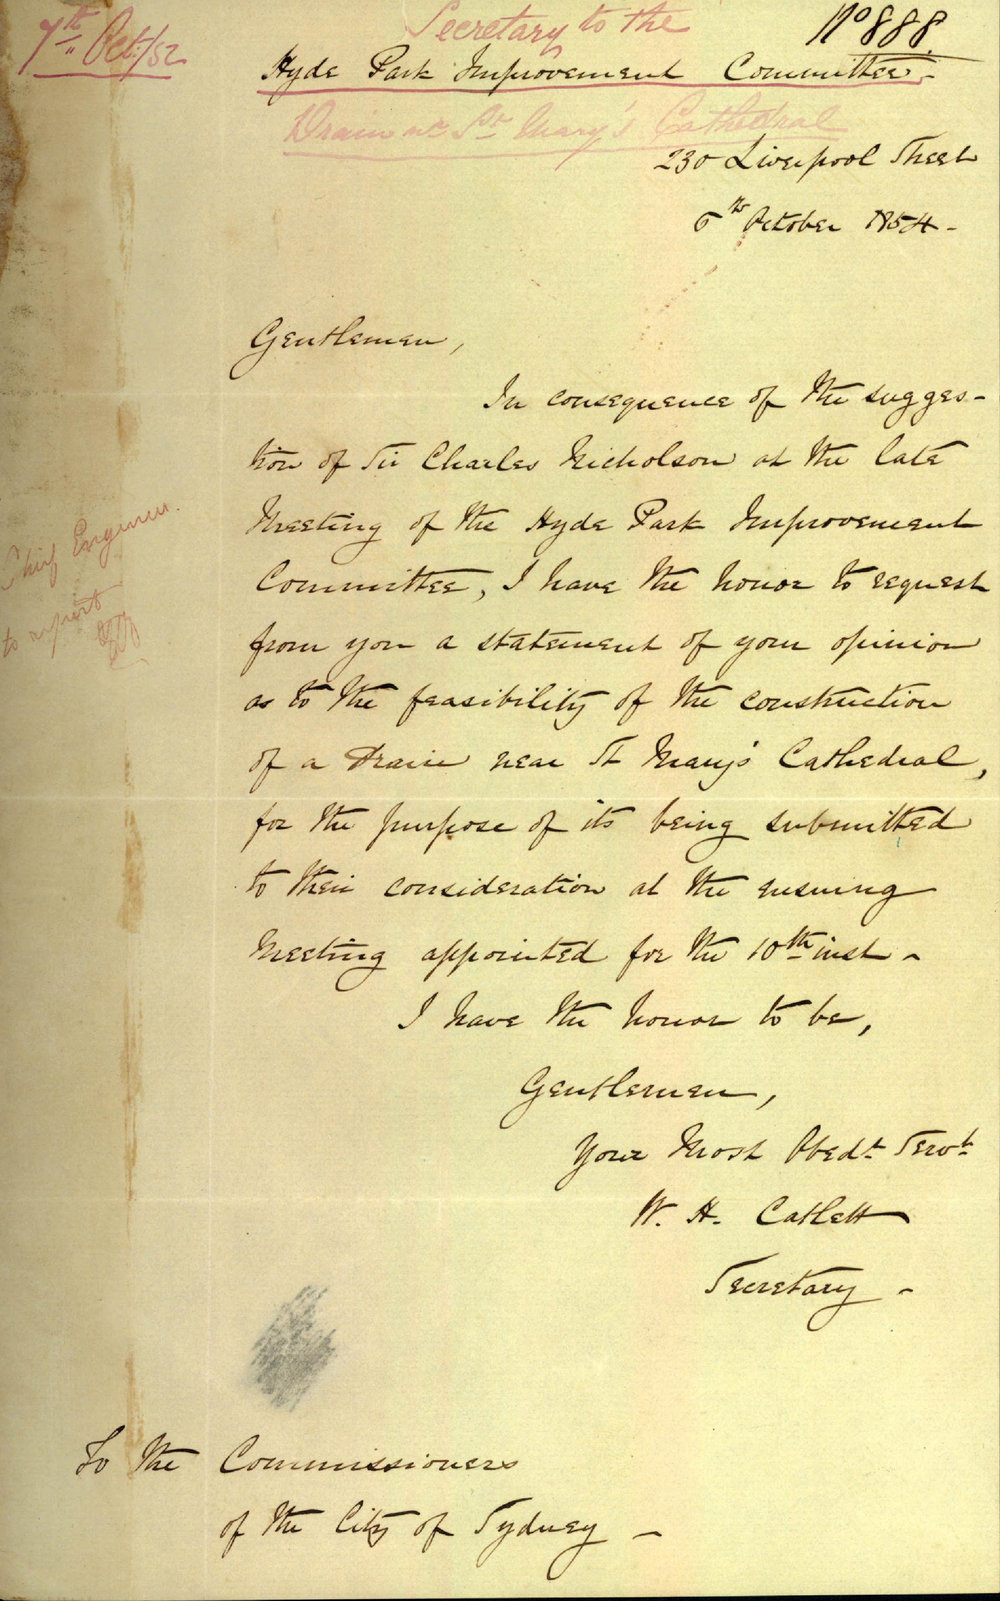 7th Oct/52
Secretary to the
No 888
Hyde Park Improvement Committee -
Drain nr St Mary's Cathedral
230 Liverpool Street
6th October 1854 -
Gentlemen,
In consequence of the sugges-
tion of Sir Charles Nicholson at the late
Meeting of the Hyde Park Improvement
Committee, I have the honor to request
from you a statement of your opinion
as to the feasibility of the construction
of a Drain near St Mary's Cathedral,
for the purpose of its being submitted
to their consideration at the ensuing
Meeting appointed for the 10th inst -
I have the honor to be,
Gentlemen,
Your Most Obedt Servt
W. H. Catlett
Secretary -
Chief Engineer
to report
To the Commissioners
of the City of Sydney -